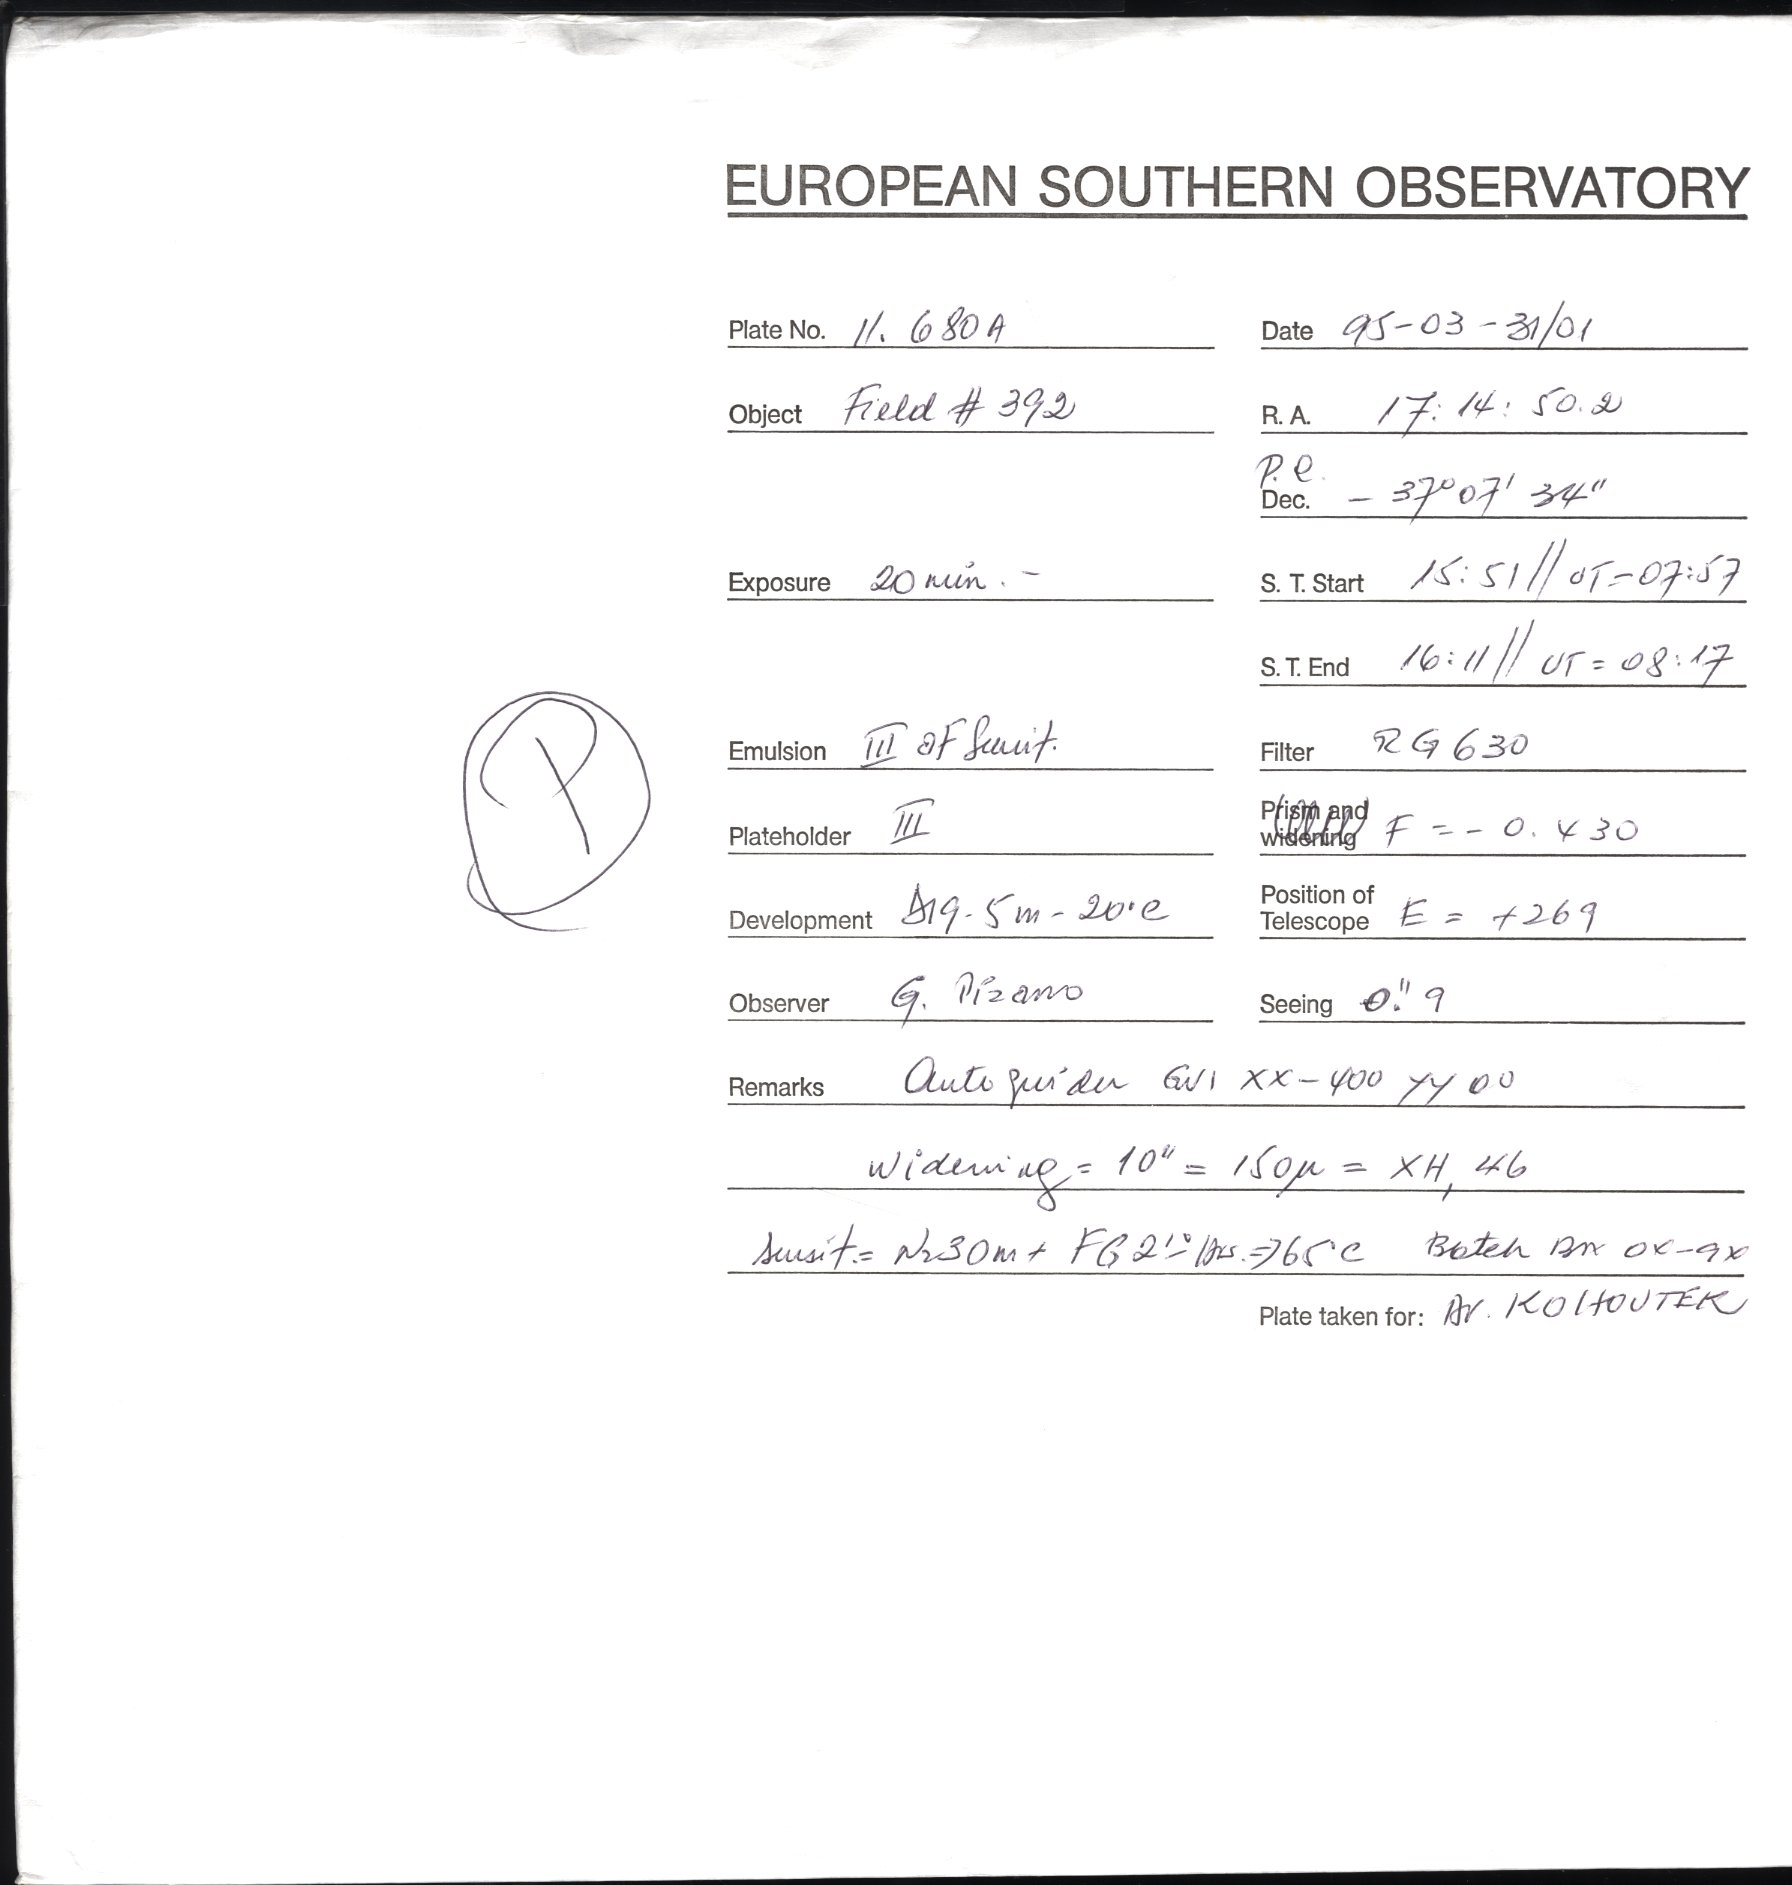 EUROPEAN SOUTHERN OBSERVATORY
Plate No. 11. 680A Date 95-03-31/01
Object Field # 392 R. A. 17: 14: 50.2
P.e.
Dec. - 37° 07' 34"
Exposure 20 min. - S. T. Start 15: 51 // UT-07:57
S. T. End 16:11 // UT = 08:17
P
Emulsion III aF Sensit. Filter RG 630
Plateholder III Prism and widening F = - 0. 430
Development D19-5m-20°c Position of Telescope E = +269
Observer G. Pizarro Seeing 0."9
Remarks Autoguider XX-400 YY 00
Widening = 10" = 150μ = XH, 46
Sensit.= N230m + FG 2 65°C Batch
Plate taken for: Dr. KOHOUTEK